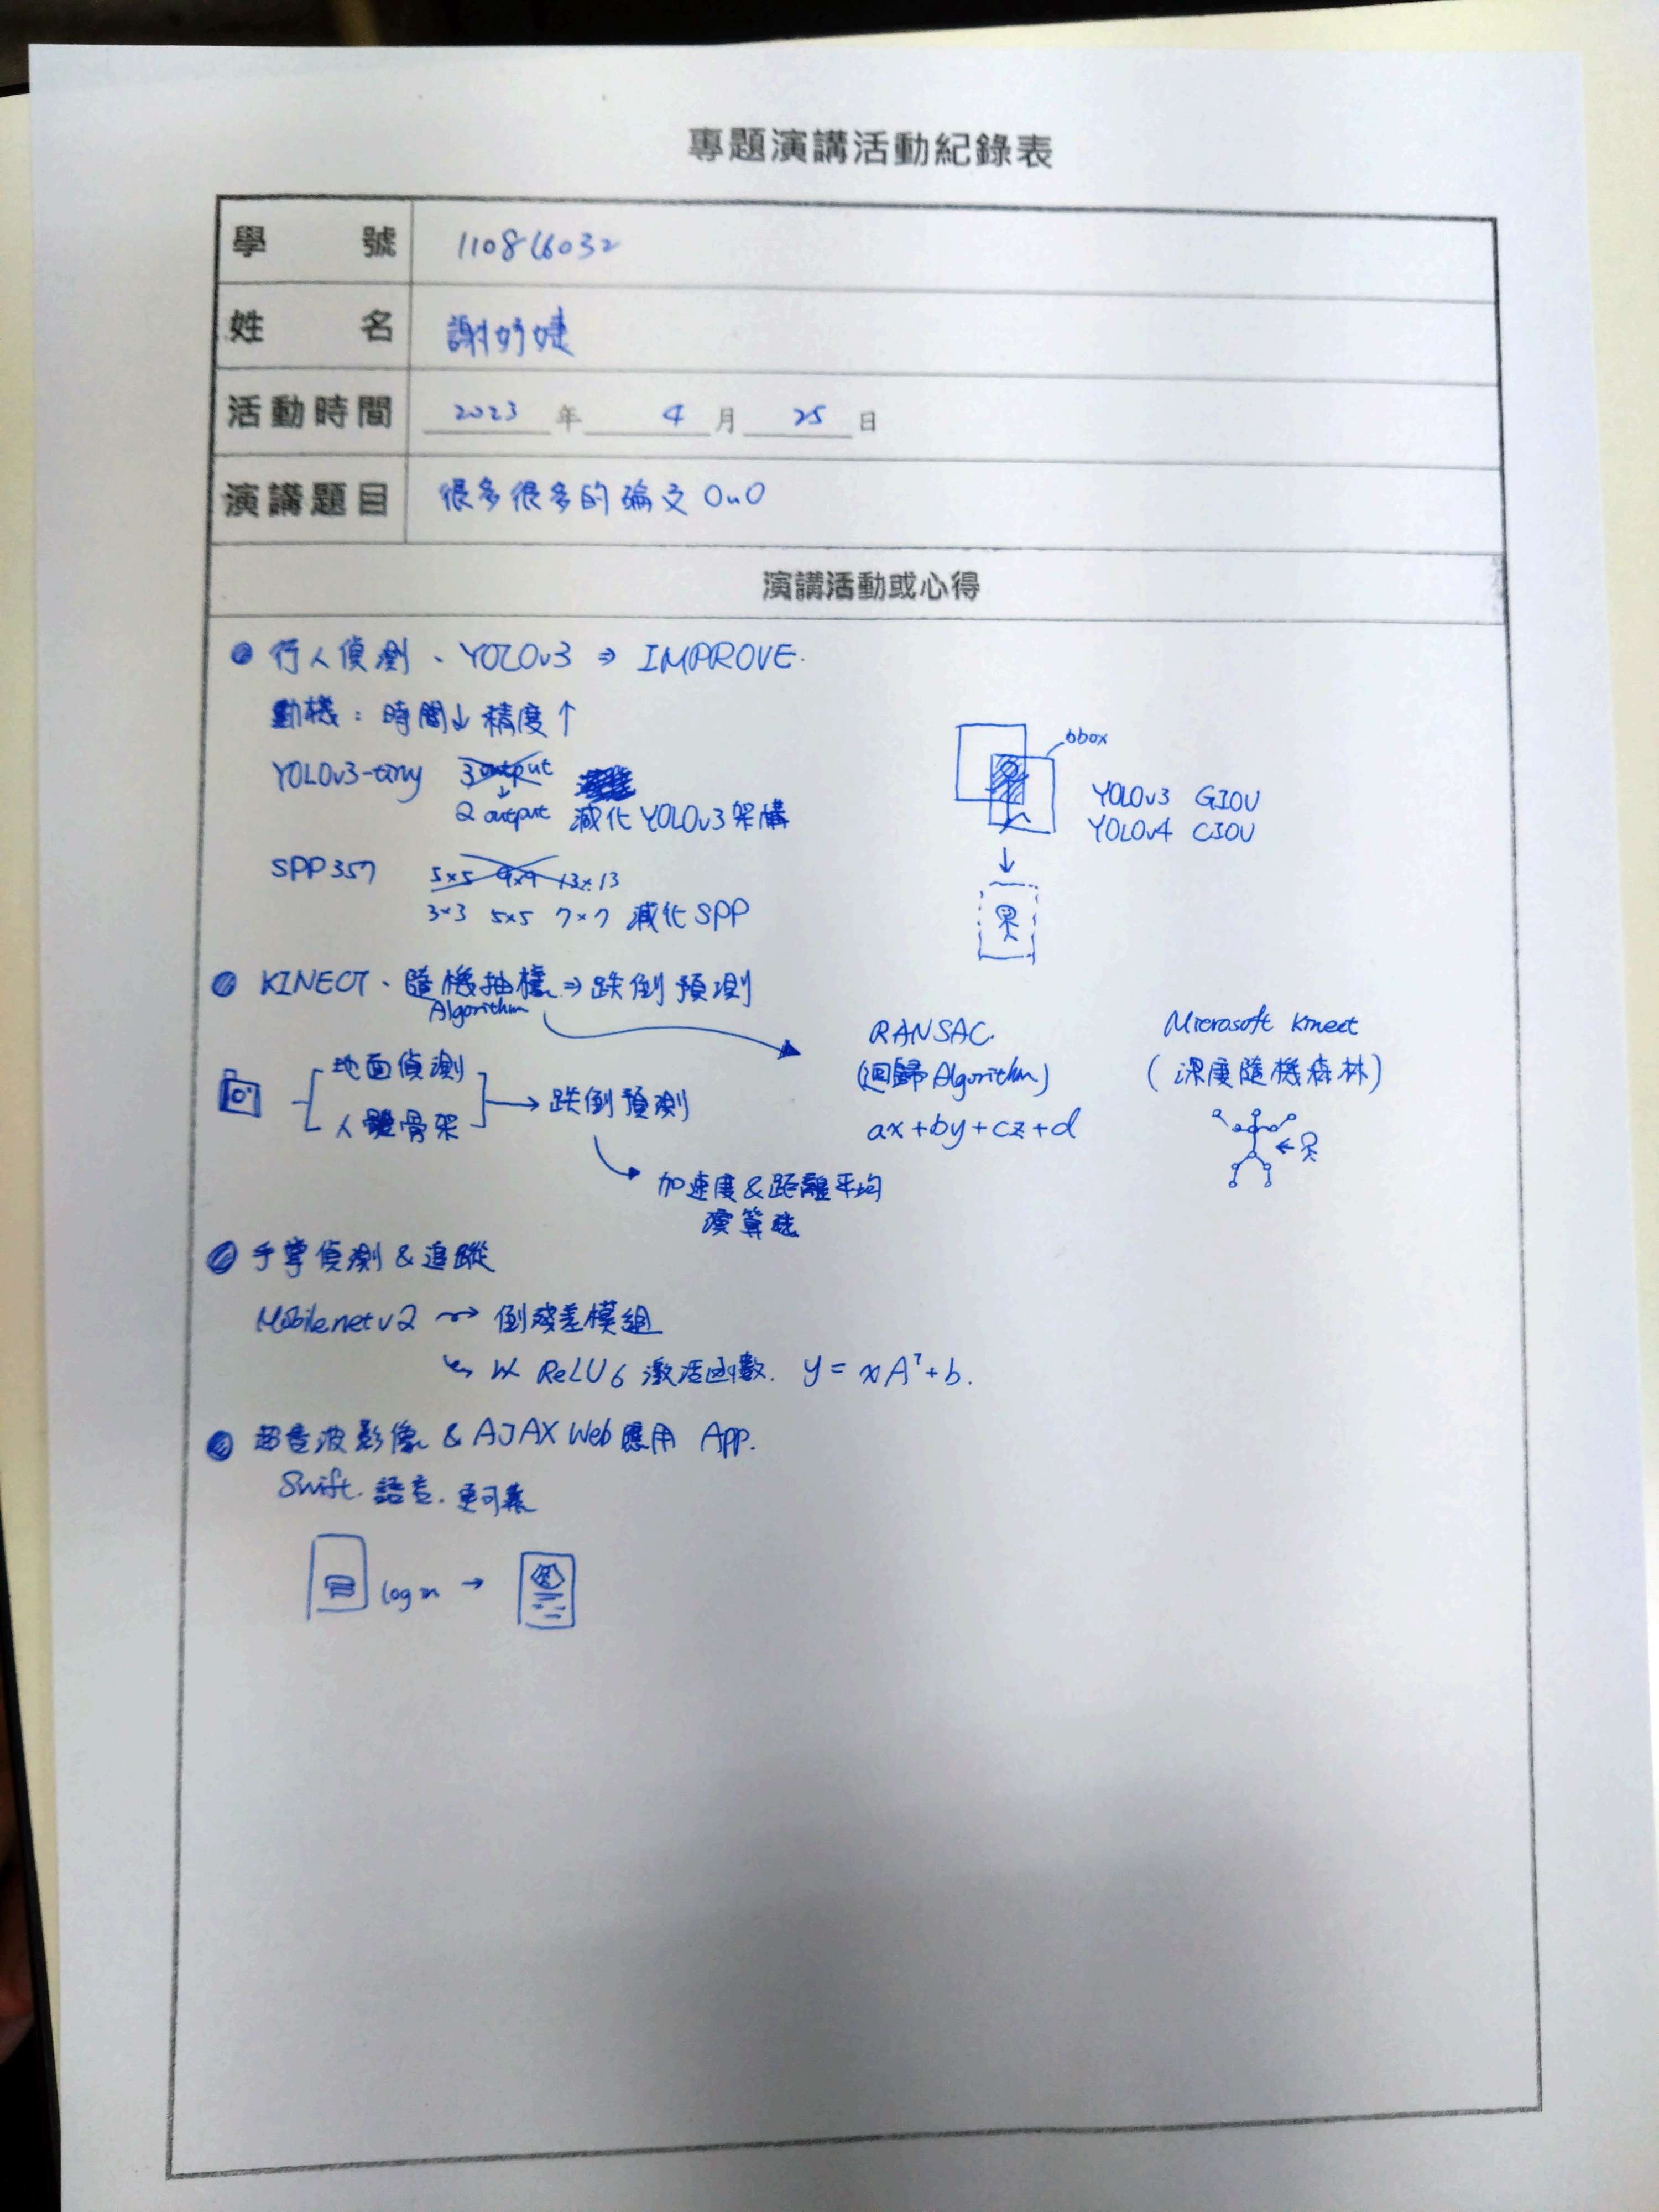 專題演講活動紀錄表
學 號 110816032
姓 名 謝妤婕
活動時間 2023 年 4 月 25 日
演講題目 很多很多的論文 OuO
演講活動或心得
行人偵測、YOLOv3 ⇒ IMPROVE.
動機：時間↓ 精度↑
YOLOv3-tiny 3 output
↓
2 output 減化 YOLOv3 架構
bbox
YOLOv3 GIOU
YOLOv4 CIOU
SPP357 5×5 9×9 13×13
3×3 5×5 7×7 減化 SPP
KINECT、隨機抽樣 ⇒ 跌倒預測
Algorithm
RANSAC.
(迴歸 Algorithm)
ax+by+cz+d
Microsoft Kinect
(深度隨機森林)
地面偵測
人體骨架
→ 跌倒預測
加速度 & 距離平均
演算法
手掌偵測 & 追蹤
Mobilenetv2 → 倒殘差模組
以 ReLU6 激活函數. y = xAᵀ+b.
超音波影像 & AJAX Web 應用 App.
Swift. 語言. 更可靠
login →